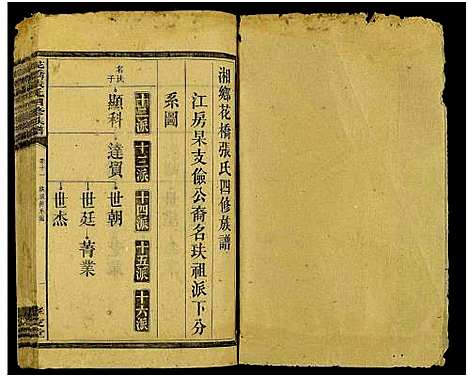 湘鄉花橋張氏四修族譜
江房杲支儉公裔名玞祖派下分
系圖
十二派 十三派 十四派 十五派 十六派
名玞子
顯科 達貭 世朝
世廷 菁業
世杰